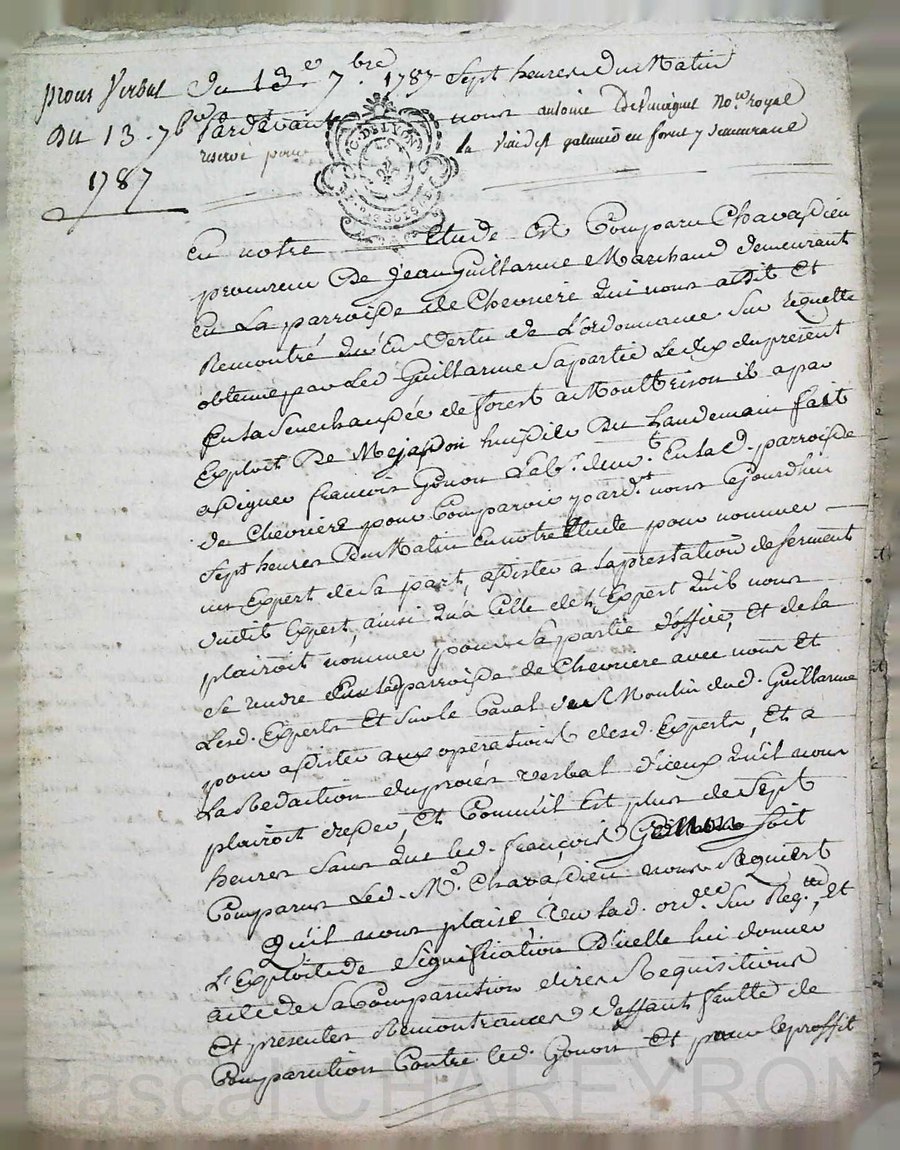 Proces Verbal
Du 13. 7bre
1787
Du 13e 7bre 1787 Sept heures du Matin
Pardevant nous antoine Devirieu no.re Royal
reservé pour la Ville de galmier en forest y demeurant
G. DE LYON
En notre Etude Est Comparu Chavassieu
procureur De Jean Guillarme Marchand demeurant
En La parroisse de Chevriere Qui nous a dit et
Remontré qu'En Vertu de L'ordonnance sur requette
obtenue par Led. Guillarme sa partie Le dix du present
En la Senechaussée de forest a Montbrison il a par
Exploit De Mejasson huissier Du Landemain fait
assigner françois Gonon Lab.r demt. En lad. parroisse
de Chevriere pour Comparoir pardt. nous Ejourdhui
Sept heures Du Matin En notre Etude pour nommer
un Expert de Sa part, assister a la prestation de Serment
dudit Expert, ainsi qu'a Celle de L'Expert qu'il nous
plairoit nommer pour Sa partie d'office, Et de la
Se rendre En lad. parroisse de Chevriere avec nous et
Lesd. Experts Et Sur le Canal du Moulin dud. Guillarme
pour assister aux operations desd. Experts, Et a
La Redaction du procés verbal d'iceux qu'il nous
plairoit dresser, Et Comme il Est plus de Sept
heures Sans que led. françois Gonon Soit
Comparus Led. Me. Chavassieu nous Requiert
Qu'il nous plaise Veu Lad. ordce. Sur Reqtte., Et
L'Exploit de Signiffication D'icelle lui donner
acte de Sa Comparution dires Requisitions
Et presentes Remontrances deffaut faulte de
Comparution Contre led. Gonon Et pour le proffit
Pascal CHAREYRON